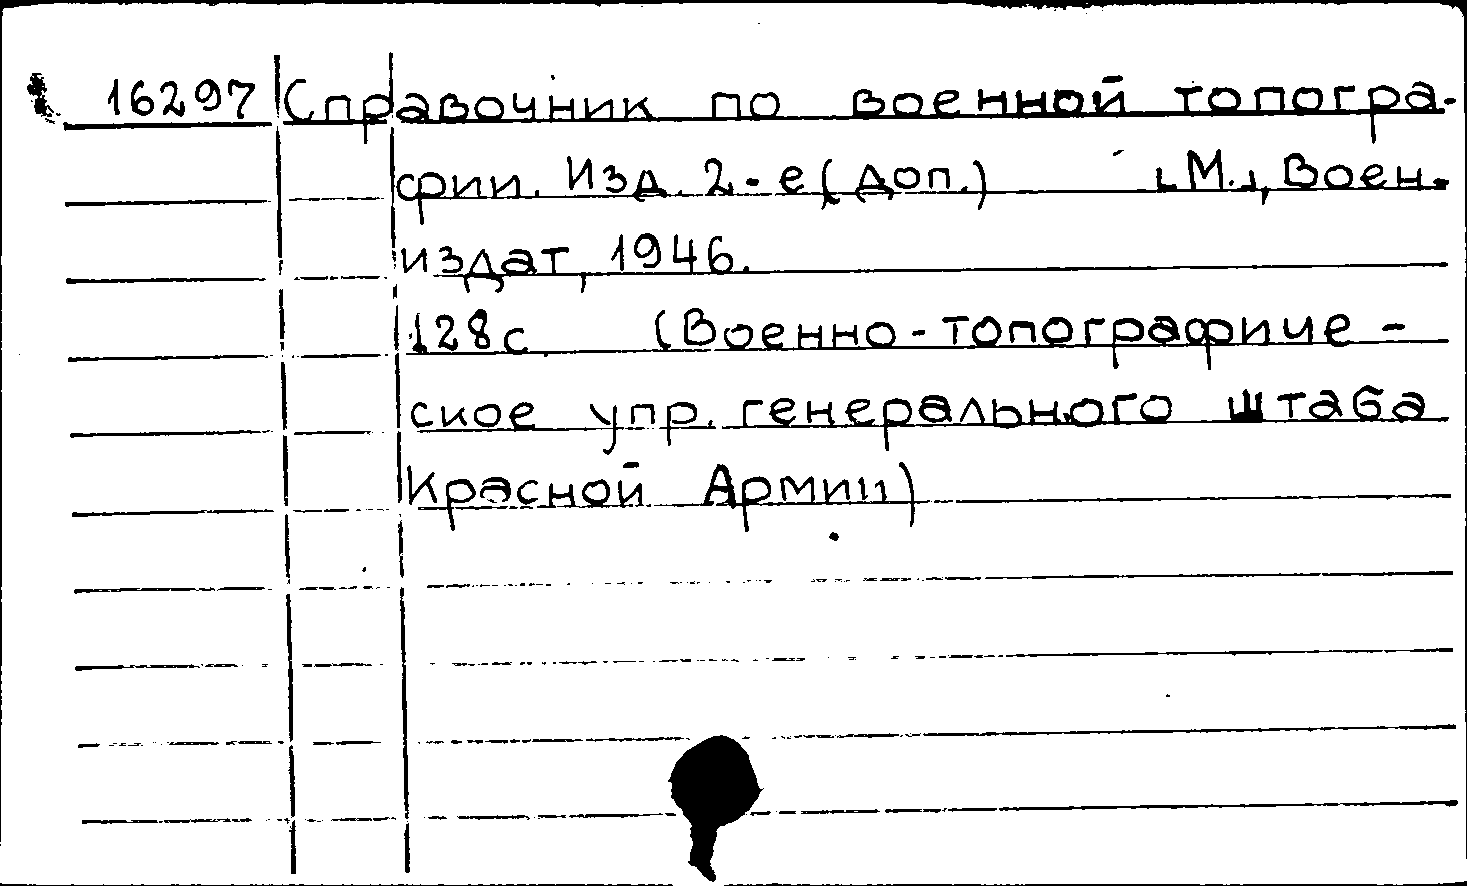 16297 Справочник по военной топогра-
фии. Изд. 2-е (доп.) [М.], Воен.
издат, 1946.
128с (Военно-топографиче-
ское упр. генерального штаба
Красной Армии)